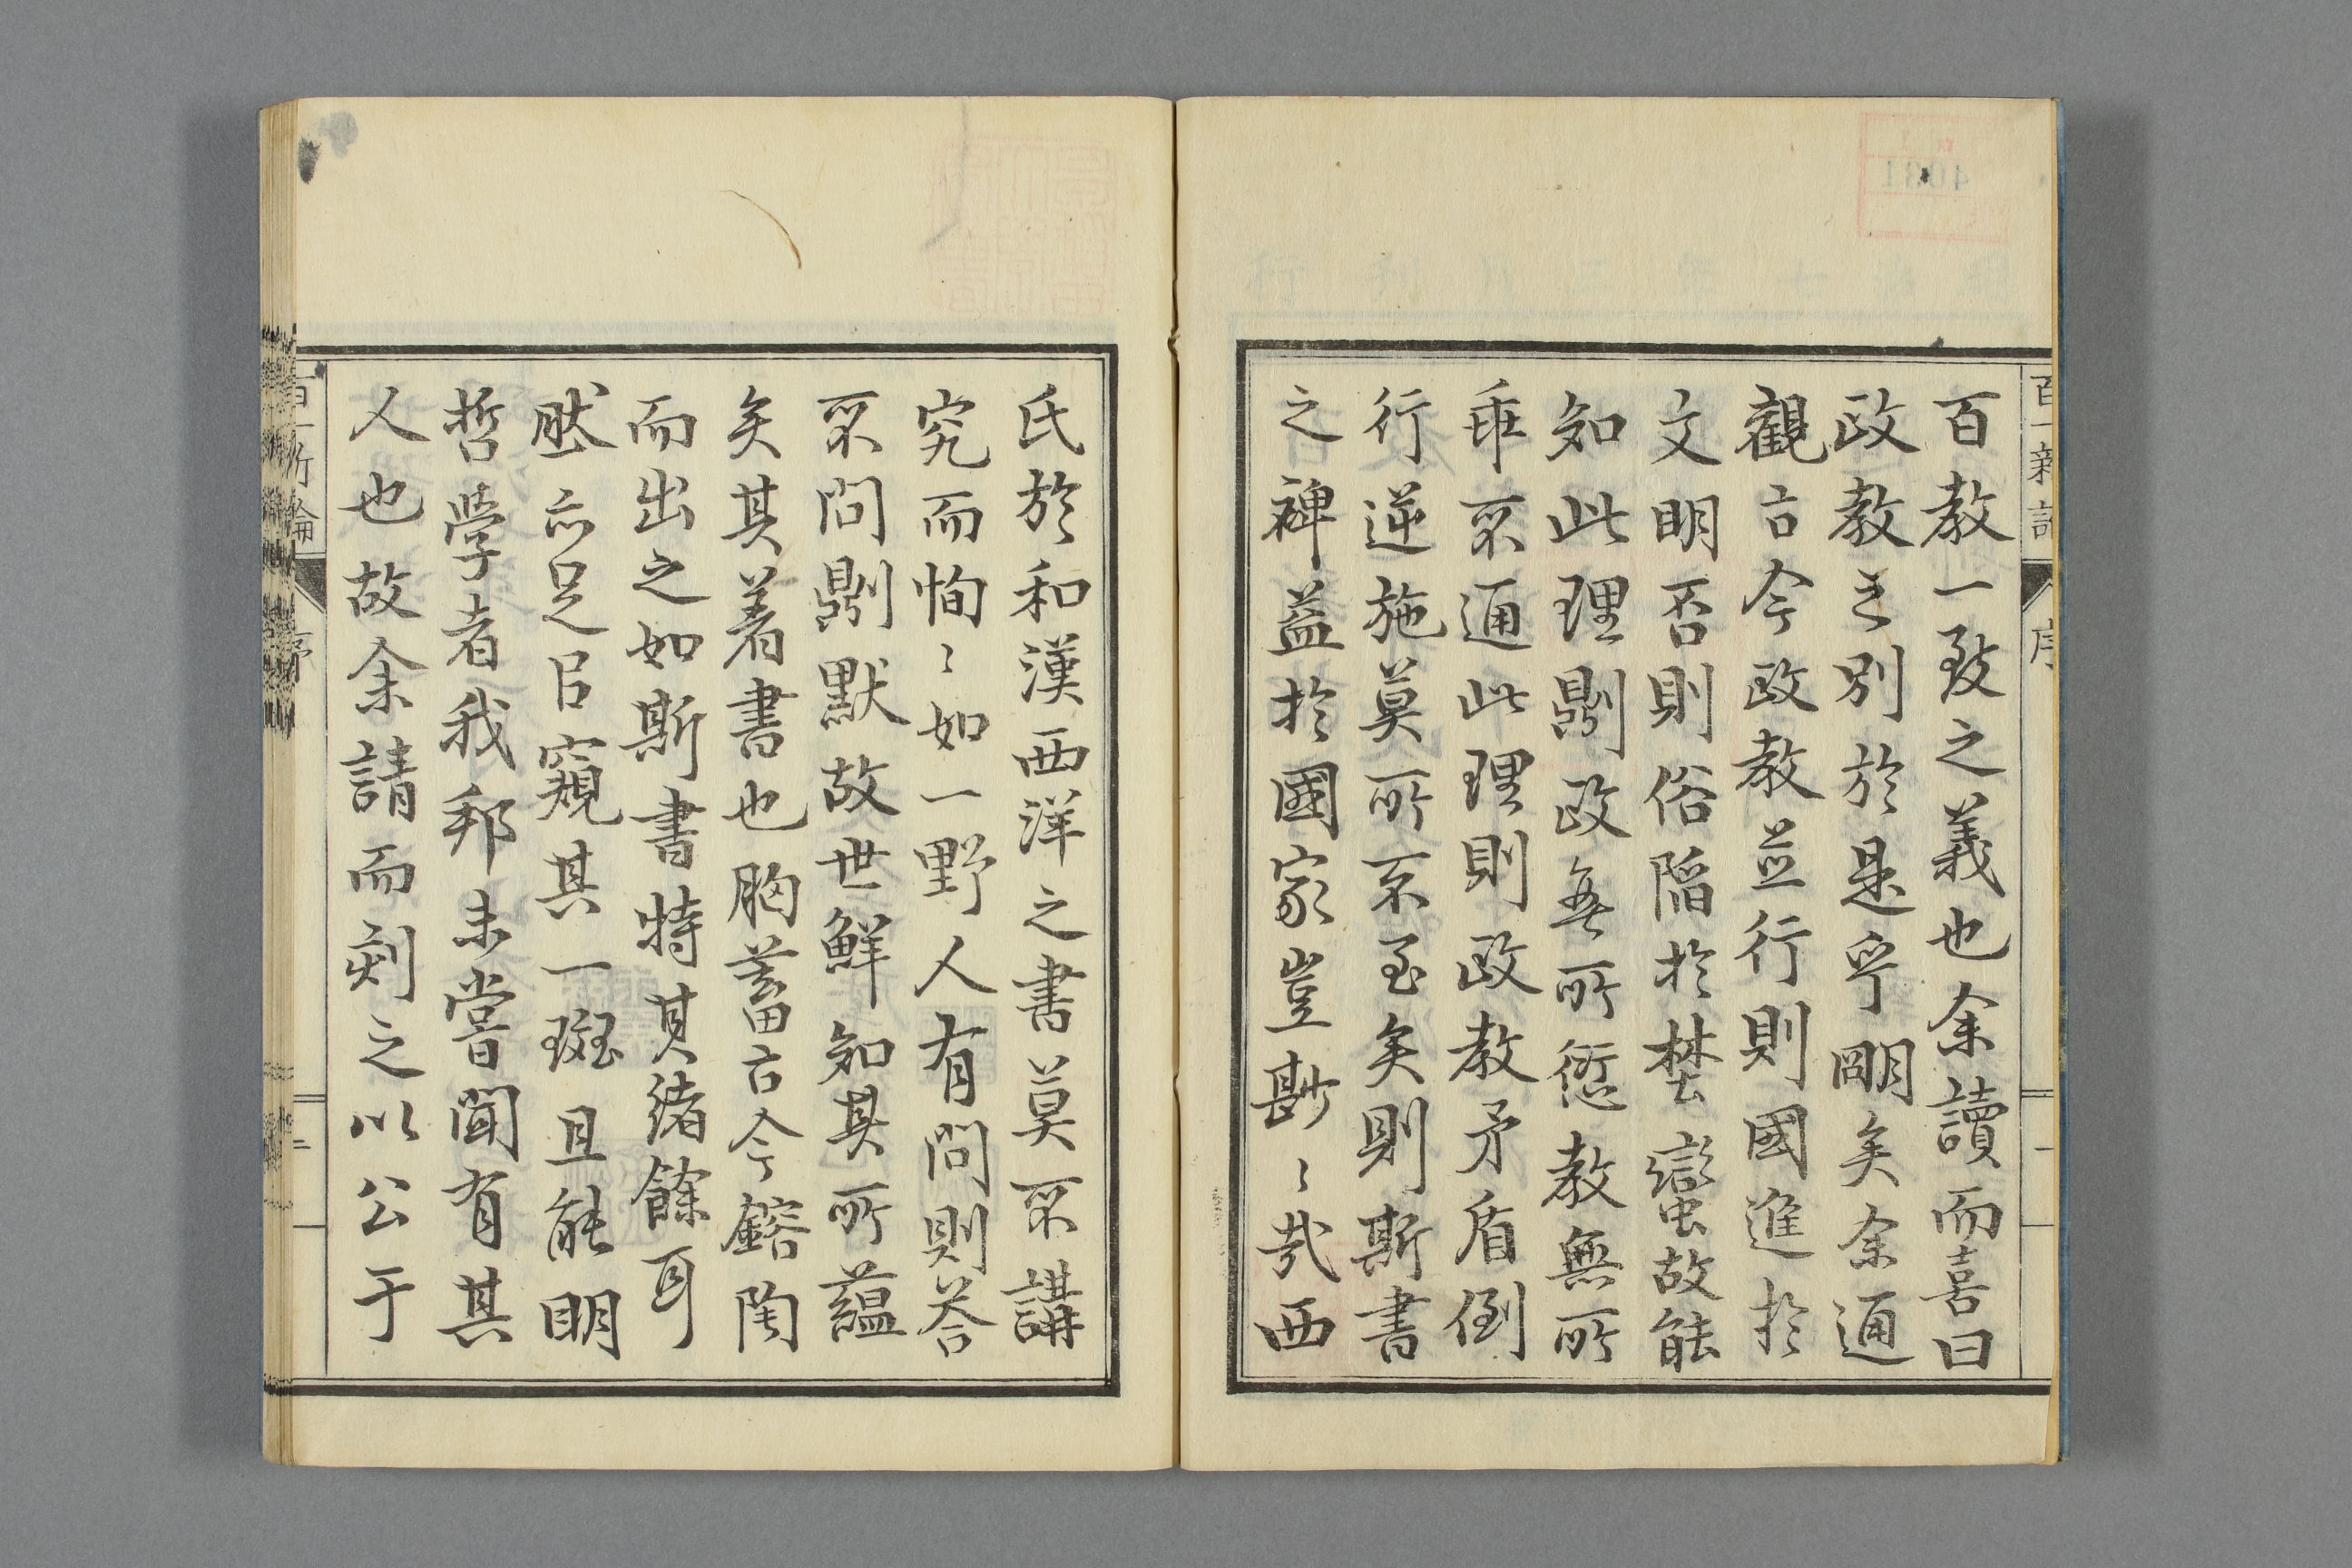 百一新論
序
一
百教一致之義也余讀而喜曰
政教之別於是乎明矣余通
觀古今政教並行則國進於
文明否則俗陷於埜蠻故能
知此理則政無所愆教無所
乖不通此理則政教矛盾倒
行逆施莫所不至矣則斯書
之裨益於國家豈尠〻哉西
氏於和漢西洋之書莫不講
究而恂〻如一野人有問則荅
不問則默故世鮮知其所蘊
矣其著書也胸蓄古今鎔陶
而出之如斯書特其緒餘耳
然亦足㠯窺其一斑且能明
哲學者我邦未嘗聞有其
人也故余請而刻之以公于